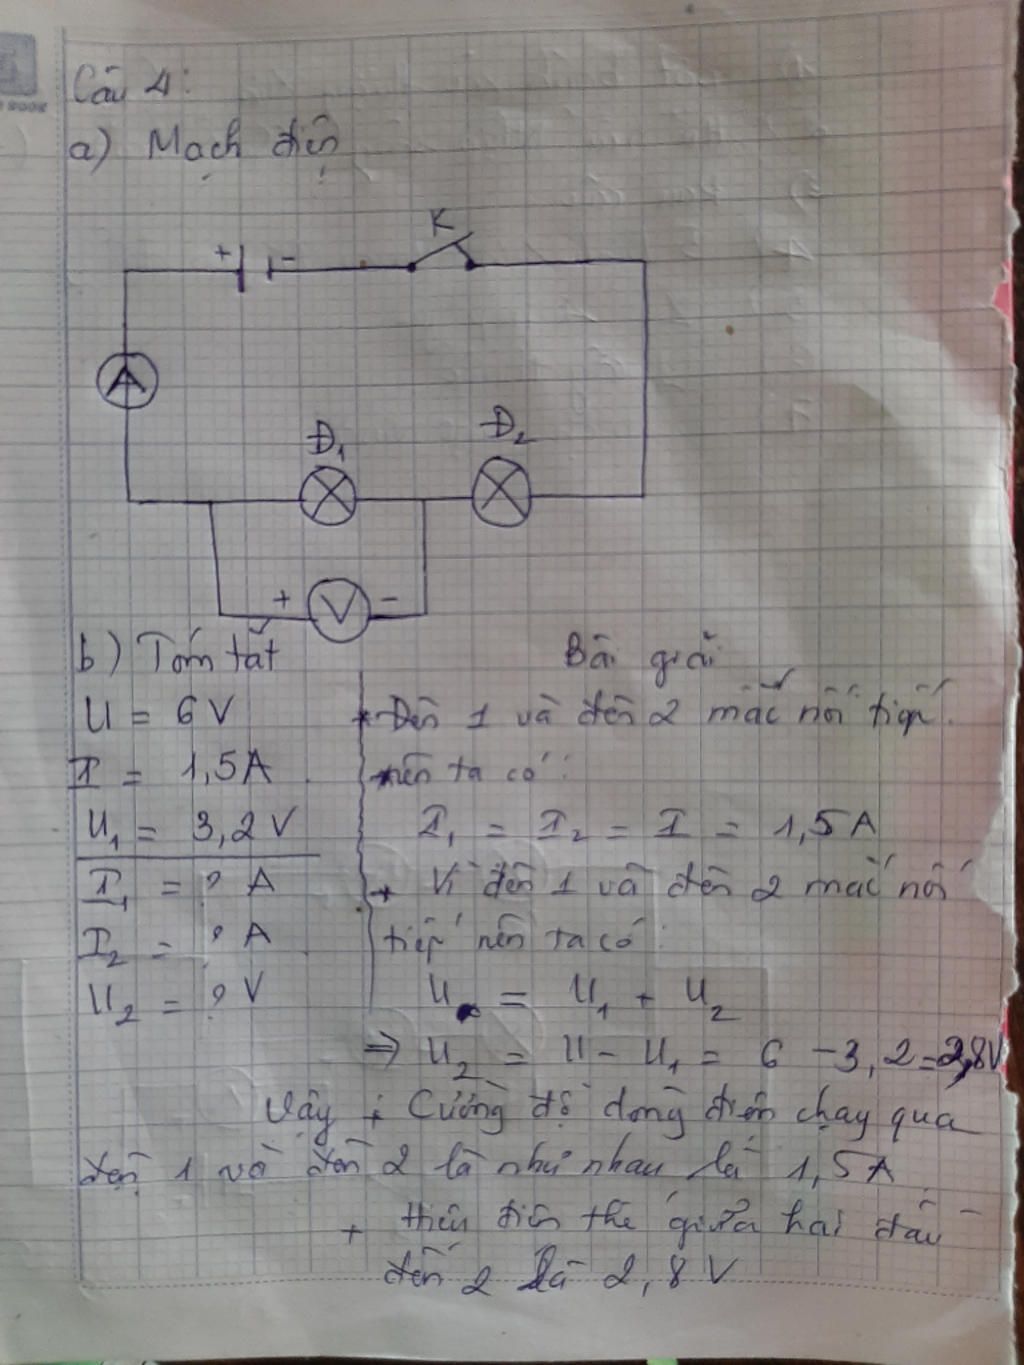 BOOK
Câu 4:
a) Mạch điện
K
+ -
A
Đ1 Đ2
+ V -
b) Tóm tắt
U = 6V
I = 1,5A
U1 = 3,2V
I1 = ? A
I2 = ? A
U2 = ? V
Bài giải
+ Đèn 1 và đèn 2 mắc nối tiếp.
nên ta có:
I1 = I2 = I = 1,5A
+ Vì đèn 1 và đèn 2 mắc nối
tiếp nên ta có:
U = U1 + U2
=> U2 = U - U1 = 6 - 3,2 = 2,8V
Vậy + Cường độ dòng điện chạy qua
đèn 1 và đèn 2 là như nhau là 1,5A
+ Hiệu điện thế giữa hai đầu
đèn 2 là 2,8V